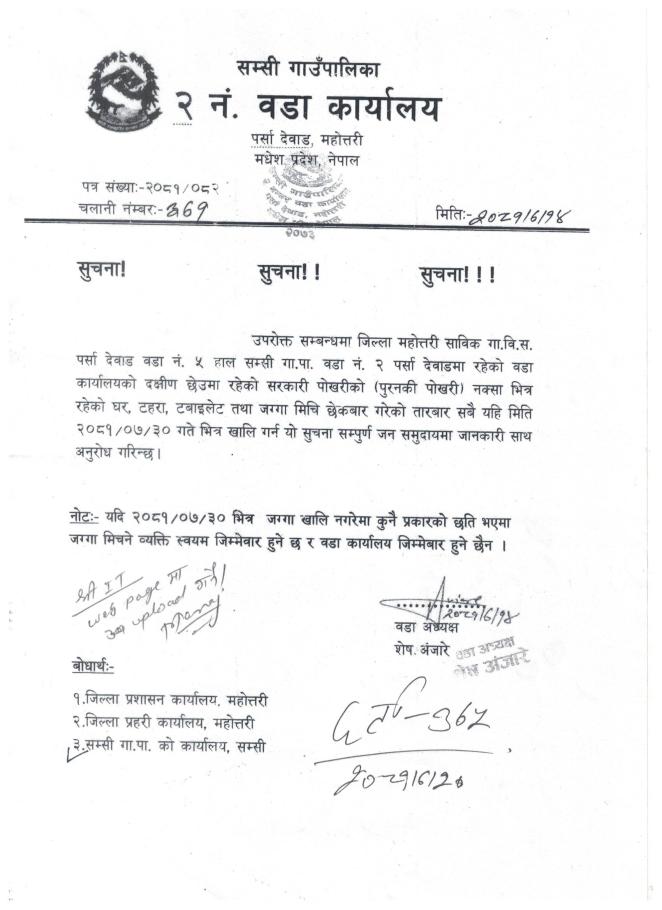 सम्सी गाउँपालिका
२ नं. वडा कार्यालय
पर्सा देवाड, महोत्तरी
मधेश प्रदेश, नेपाल
पत्र संख्याः-२०८१/०८२
चलानी नम्बरः-
मितिः-२०८१/6/१४
२०७३
सुचना! सुचना! ! सुचना! ! !
उपरोक्त सम्बन्धमा जिल्ला महोत्तरी साविक गा.वि.स.
पर्सा देवाड वडा नं. ५ हाल सम्सी गा.पा. वडा नं. २ पर्सा देवाडमा रहेको वडा
कार्यालयको दक्षीण छेउमा रहेको सरकारी पोखरीको (पुरनकी पोखरी) नक्सा भित्र
रहेको घर, टहरा, टबाइलेट तथा जग्गा मिचि छेकबार गरेको तारबार सबै यहि मिति
२०८१/०७/३० गते भित्र खालि गर्न यो सुचना सम्पुर्ण जन समुदायमा जानकारी साथ
अनुरोध गरिन्छ।
नोटः- यदि २०८१/०७/३० भित्र जग्गा खालि नगरेमा कुनै प्रकारको छति भएमा
जग्गा मिचने व्यक्ति स्वयम जिम्मेवार हुने छ र वडा कार्यालय जिम्मेबार हुने छैन ।
श्री IT
web page मा
upload गर्ने!
२०८१/6/१४
वडा अध्यक्ष
शेष. अंजारे
वडा अध्यक्ष
शेष अंजारे
बोधार्थः-
१.जिल्ला प्रशासन कार्यालय, महोत्तरी
२.जिल्ला प्रहरी कार्यालय, महोत्तरी
३.सम्सी गा.पा. को कार्यालय, सम्सी